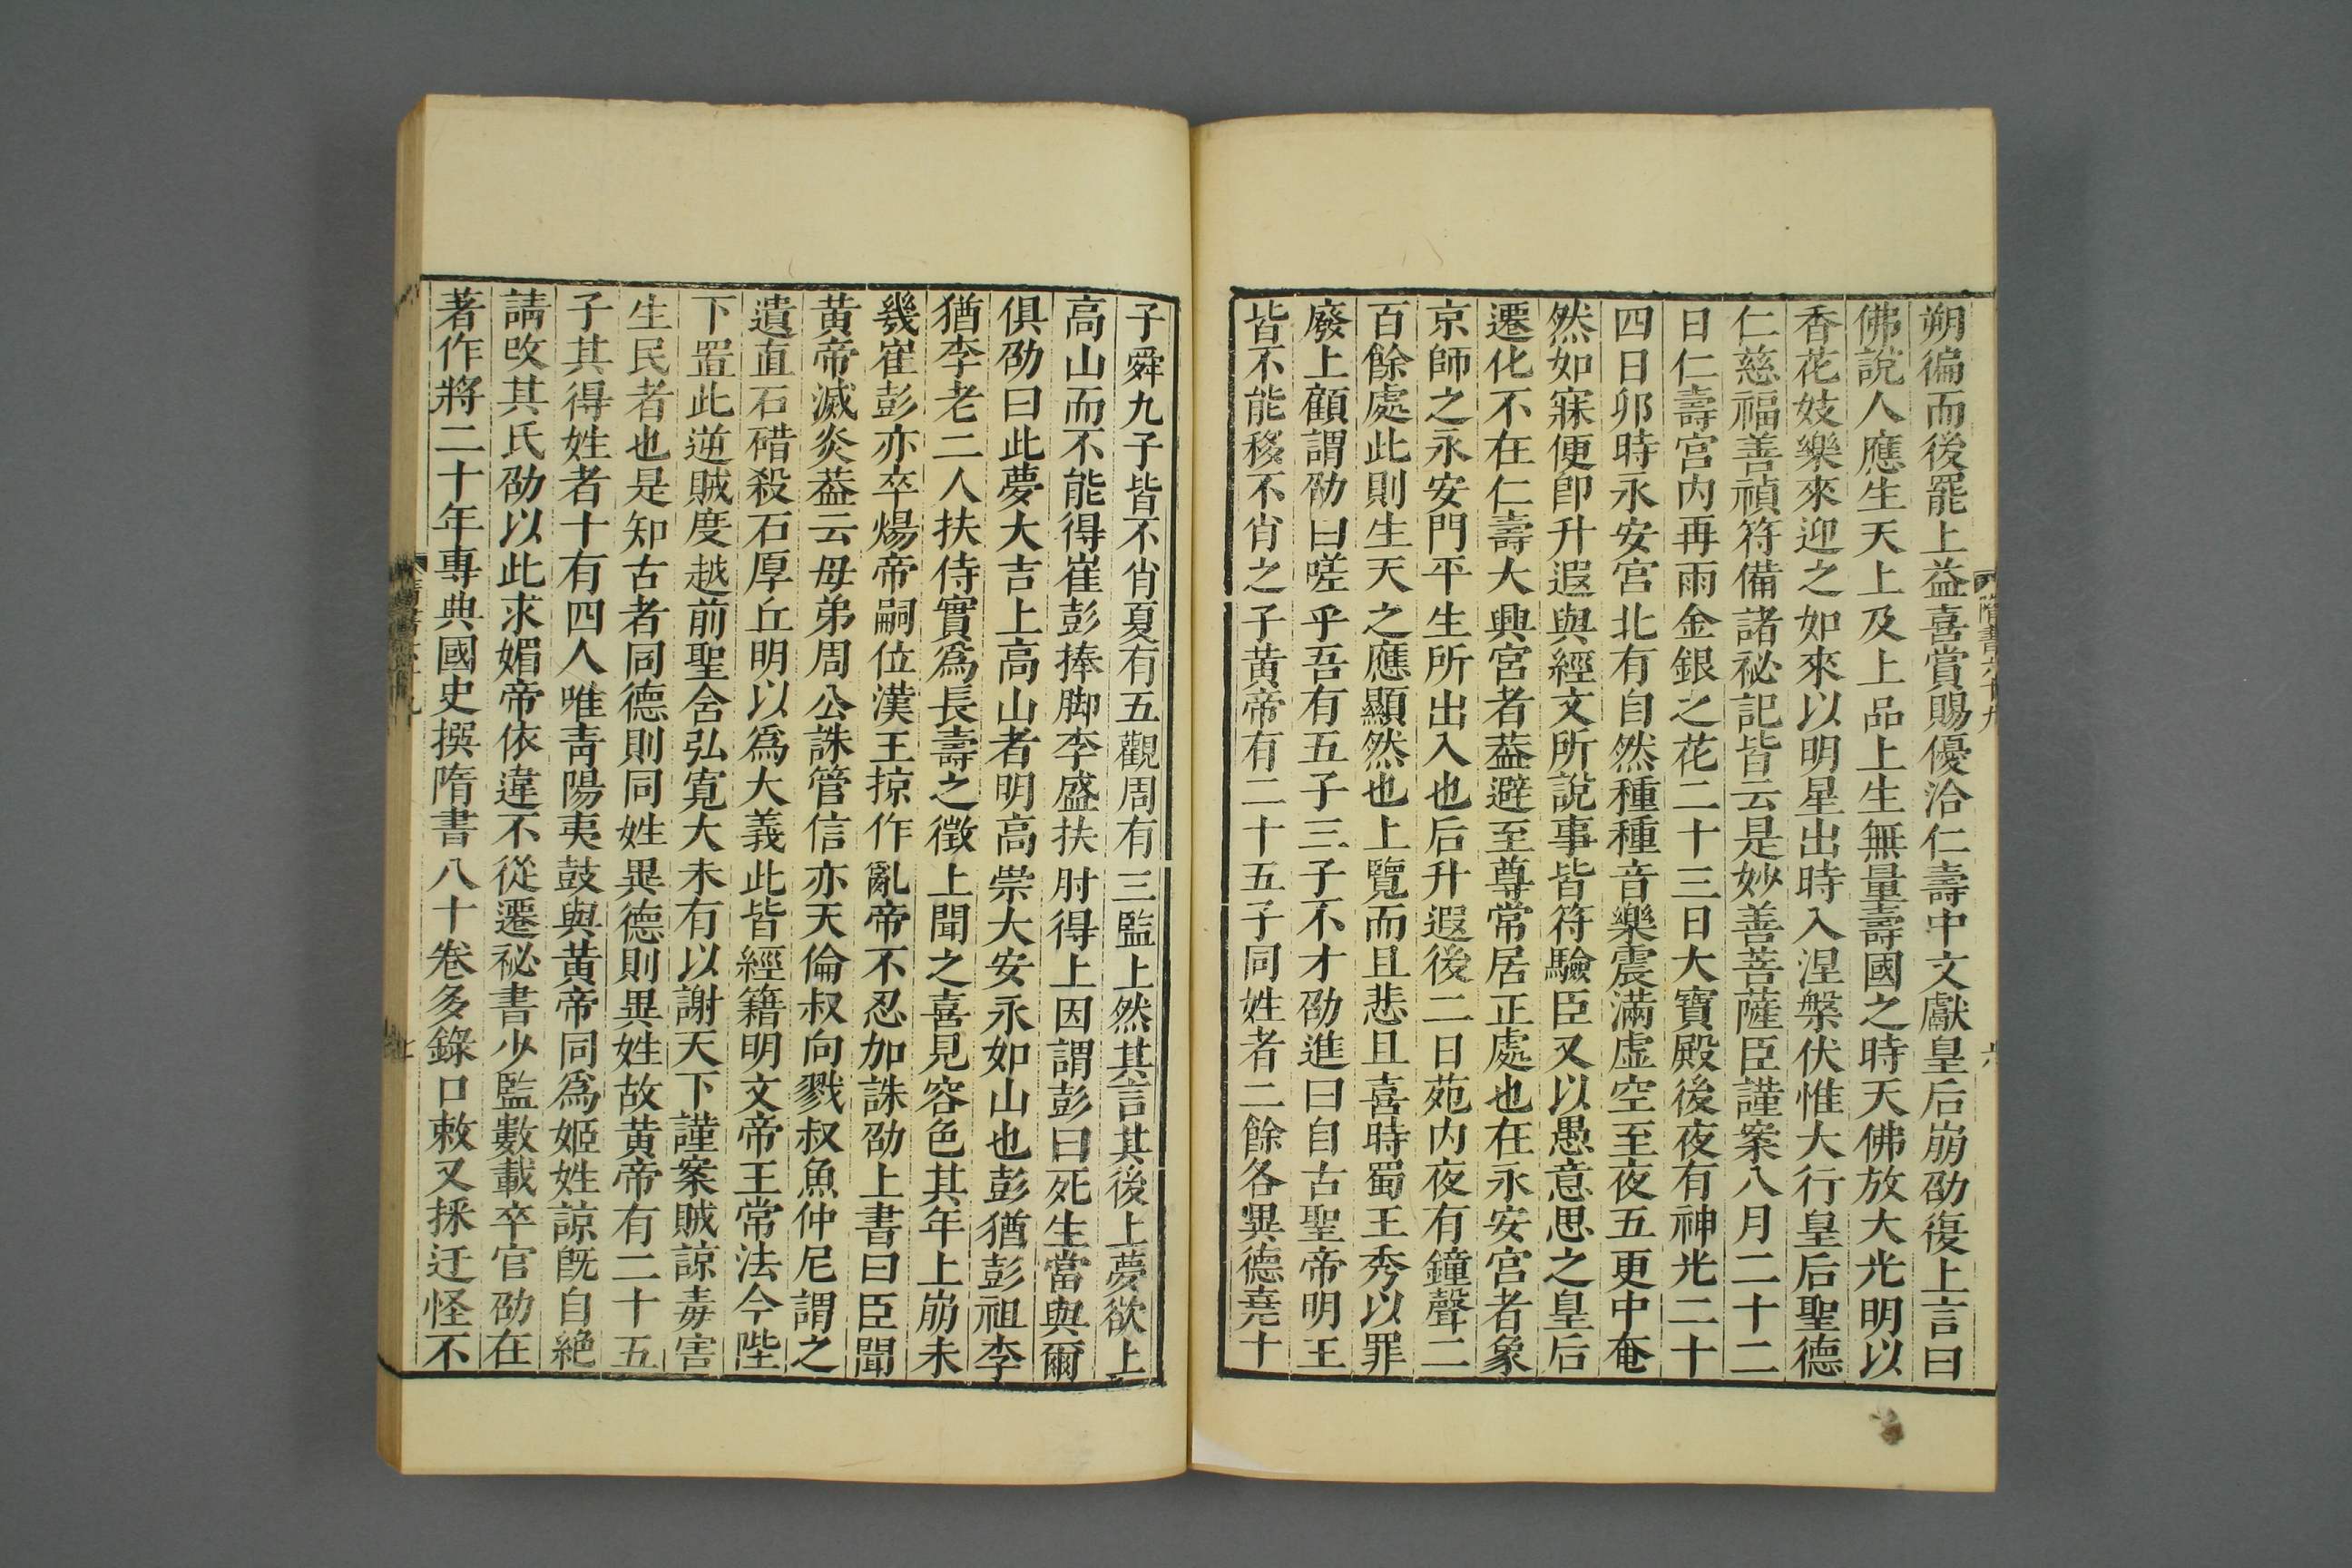 朔徧而後罷上益喜賞賜優洽仁壽中文獻皇后崩劭復上言曰
佛說人應生天上及上品上生無量壽國之時天佛放大光明以
香花妓樂來迎之如來以明星出時入涅槃伏惟大行皇后聖德
仁慈福善禎符備諸祕記皆云是妙善菩薩臣謹案八月二十二
日仁壽宮内再雨金銀之花二十三日大寶殿後夜有神光二十
四日卯時永安宮北有自然種種音樂震滿虛空至夜五更中奄
然如寐便卽升遐與經文所說事皆符驗臣又以愚意思之皇后
遷化不在仁壽大興宮者葢避至尊常居正處也在永安宮者象
京師之永安門平生所出入也后升遐後二日苑内夜有鐘聲二
百餘處此則生天之應顯然也上覽而且悲且喜時蜀王秀以罪
廢上顧謂劭曰嗟乎吾有五子三子不才劭進曰自古聖帝明王
皆不能移不肖之子黃帝有二十五子同姓者二餘各異德堯十
子舜九子皆不肖夏有五觀周有三監上然其言其後上夢欲上
高山而不能得崔彭捧脚李盛扶肘得上因謂彭曰死生當與爾
俱劭曰此夢大吉上高山者明高崇大安永如山也彭猶彭祖李
猶李老二人扶侍實爲長壽之徵上聞之喜見容色其年上崩未
幾崔彭亦卒煬帝嗣位漢王掠作亂帝不忍加誅劭上書曰臣聞
黃帝滅炎葢云母弟周公誅管信亦天倫叔向戮叔魚仲尼謂之
遺直石碏殺石厚丘明以爲大義此皆經籍明文帝王常法今陛
下置此逆賊度越前聖含弘寬大未有以謝天下謹案賊諒毒害
生民者也是知古者同德則同姓異德則異姓故黃帝有二十五
子其得姓者十有四人唯靑陽夷鼓與黃帝同爲姬姓諒旣自絕
請改其氏劭以此求媚帝依違不從遷祕書少監數載卒官劭在
著作將二十年專典國史撰隋書八十卷多錄口敕又採迂怪不